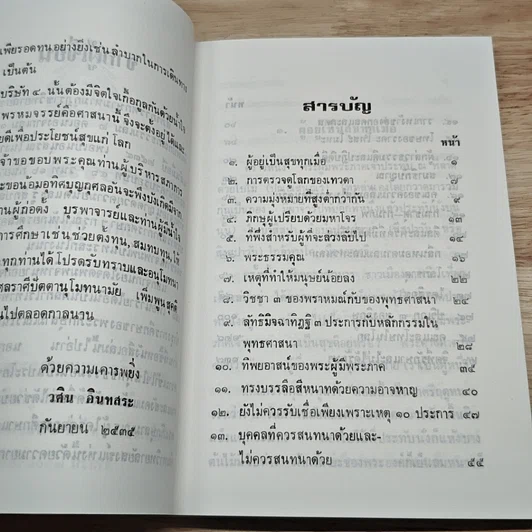 เพียรอดทนอย่างยิ่งเช่น ลำบากในการเดินทาง
เป็นต้น
บริษัท ๔ นั้นต้องมีจิตใจเกื้อกูลกันด้วยน้ำใจ
พรหมจรรย์คือศาสนานี้ จึงจะตั้งอยู่ได้และ
ยดีเพื่อประโยชน์สุขแก่ โลก
จ้าขอขอบพระคุณท่านผู้บริหารสภาการ
ขอน้อมอุทิศบุญกุศลอันจะพึงบังเกิดมีจาก
ท่านผู้ก่อตั้ง บูรพาจารย์และท่านผู้มีน้ำใจ
การศึกษาเช่นช่วยตั้งทุน, สมทบทุน, ให้
ทุกท่านได้โปรดรับทราบและอนุโมทนา
เพิ่มพูนสุคติ
นไปตลอดกาลนาน
ด้วยความเคารพยิ่ง
วศิน อินทสระ
กันยายน ๒๕๓๕
สารบัญ
หน้า
๑. ผู้อยู่เป็นสุขทุกเมื่อ ๑
๒. การตรวจดูโลกของเทวดา ๕
๓. ความมุ่งหมายที่สูงต่ำกว่ากัน ๙
๔. ภิกษุผู้เปรียบด้วยมหาโจร ๑๓
๕. ที่พึ่งสำหรับผู้ที่จะล่วงลับไป ๑๔
๖. พระธรรมคุณ
๗. เหตุที่ทำให้มนุษย์น้อยลง ๒๒
๘. วิชชา ๓ ของพราหมณ์กับของพุทธศาสนา
๙. ลัทธิมิจฉาทิฏฐิ ๓ ประการกับหลักกรรมใน
พุทธศาสนา ๒๘
๑๐. ทิพยอาสน์ของพระผู้มีพระภาค ๓๔
๑๑. ทรงบรรลือสีหนาทด้วยความอาจหาญ ๔๐
๑๒. ยังไม่ควรรับเชื่อเพียงเพราะเหตุ ๑๐ ประการ ๔๗
๑๓. บุคคลที่ควรสนทนาด้วยและ-
ไม่ควรสนทนาด้วย ๕๕